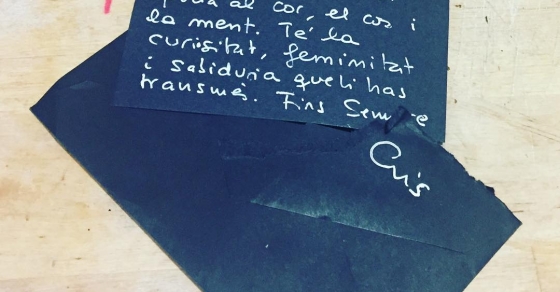 al cor, el cos i
la ment. Té la
curiositat, feminitat
i sabiduria que li has
transmès. Fins Sempre
Cris